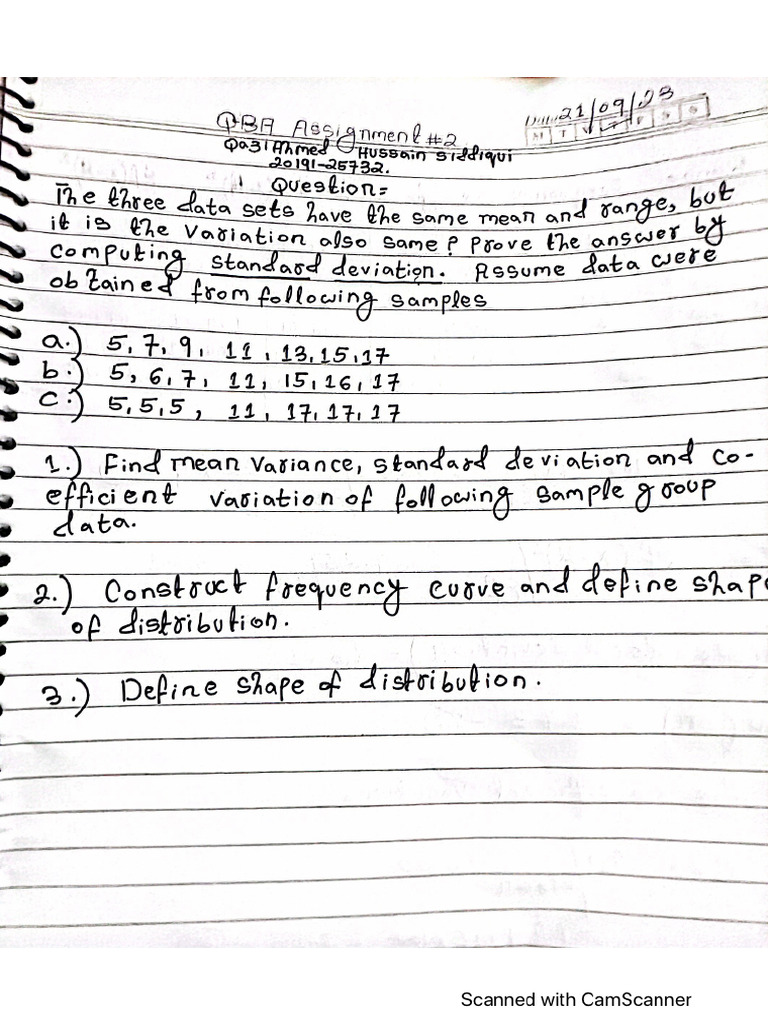 21/09/23
M T W T F S S
QBA Assignment #2
Qazi Ahmed Hussain Siddiqui
20191-25732.
Question=
The three data sets have the same mean and range, but
it is the variation also same? Prove the answer by
computing standard deviation. Assume data were
obtained from following samples
a.) 5, 7, 9, 11, 13, 15, 17
b.) 5, 6, 7, 11, 15, 16, 17
c.) 5, 5, 5, 11, 17, 17, 17
1.) Find mean variance, standard deviation and co-
efficient variation of following sample group
data.
2.) Construct frequency curve and define shape
of distribution.
3.) Define shape of distribution.
Scanned with CamScanner